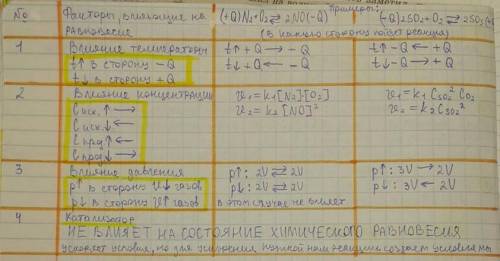 № Факторы, влияющие на равновесие
Примеры:
(+Q)N₂+O₂ ⇄ 2NO(-Q)
(-Q)2SO₂+O₂ ⇄ 2SO₃
(в какую сторону пойдет реакция)
1 Влияние температуры
t↑ в сторону -Q
t↓ в сторону +Q
t↑ +Q → -Q
t↓ +Q ← -Q
t↑ -Q ← +Q
t↓ -Q → +Q
2 Влияние концентрации
C исх. ↑ →
C исх. ↓ ←
C прод ↑ ←
C прод ↓ →
v₁ = k₁ [N₂]·[O₂]
v₂ = k₂ [NO]²
v₁ = k₁ C SO₂² C O₂
v₂ = k₂ C SO₃²
3 Влияние давления
p↑ в сторону V↓ газов
p↓ в сторону V↑ газов
p↑: 2V ⇄ 2V
p↓: 2V ⇄ 2V
в этом случае не влияет
p↑: 3V → 2V
p↓: 3V ← 2V
4 Катализатор
НЕ ВЛИЯЕТ НА СОСТОЯНИЕ ХИМИЧЕСКОГО РАВНОВЕСИЯ
ускоряет условия, но для ускорения нужной нам реакции создаем условия мы